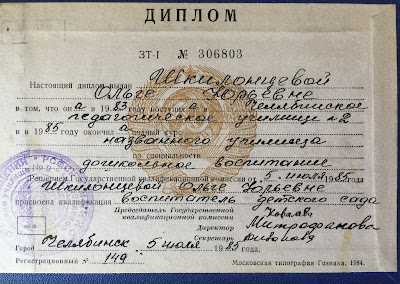 ДИПЛОМ
ЗТ-I № 306803
Настоящий диплом выдан Шкилонцевой
Ольге Юрьевне
в том, что она в 1983 году поступила в Челябинское
педагогическое училище №2
и в 1985 году окончила полный курс
названного училища
по специальности
дошкольное воспитание
Решением Государственной квалификационной комиссии от 5 июля 1985 г.
Шкилонцевой Ольге Юрьевне
присвоена квалификация воспитатель детского сада
Председатель Государственной
квалификационной комиссии
Директор Митрофанова
Секретарь
Город Челябинск 5 июля 1985 года.
Регистрационный № 149
Московская типография Гознака. 1984.